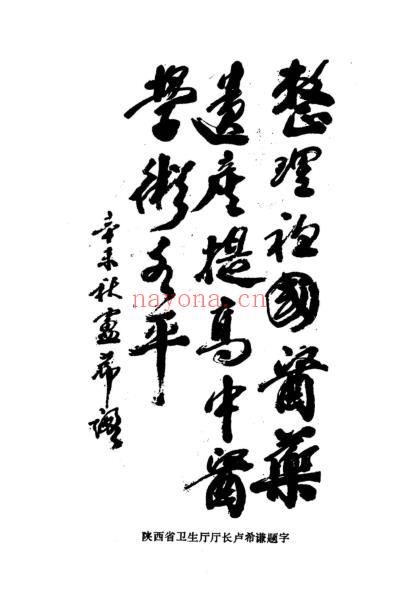 整理祖國醫藥
遺産提高中醫
學術水平
辛未秋盧希謙
陕西省卫生厅厅长卢希谦题字
nayona.cn